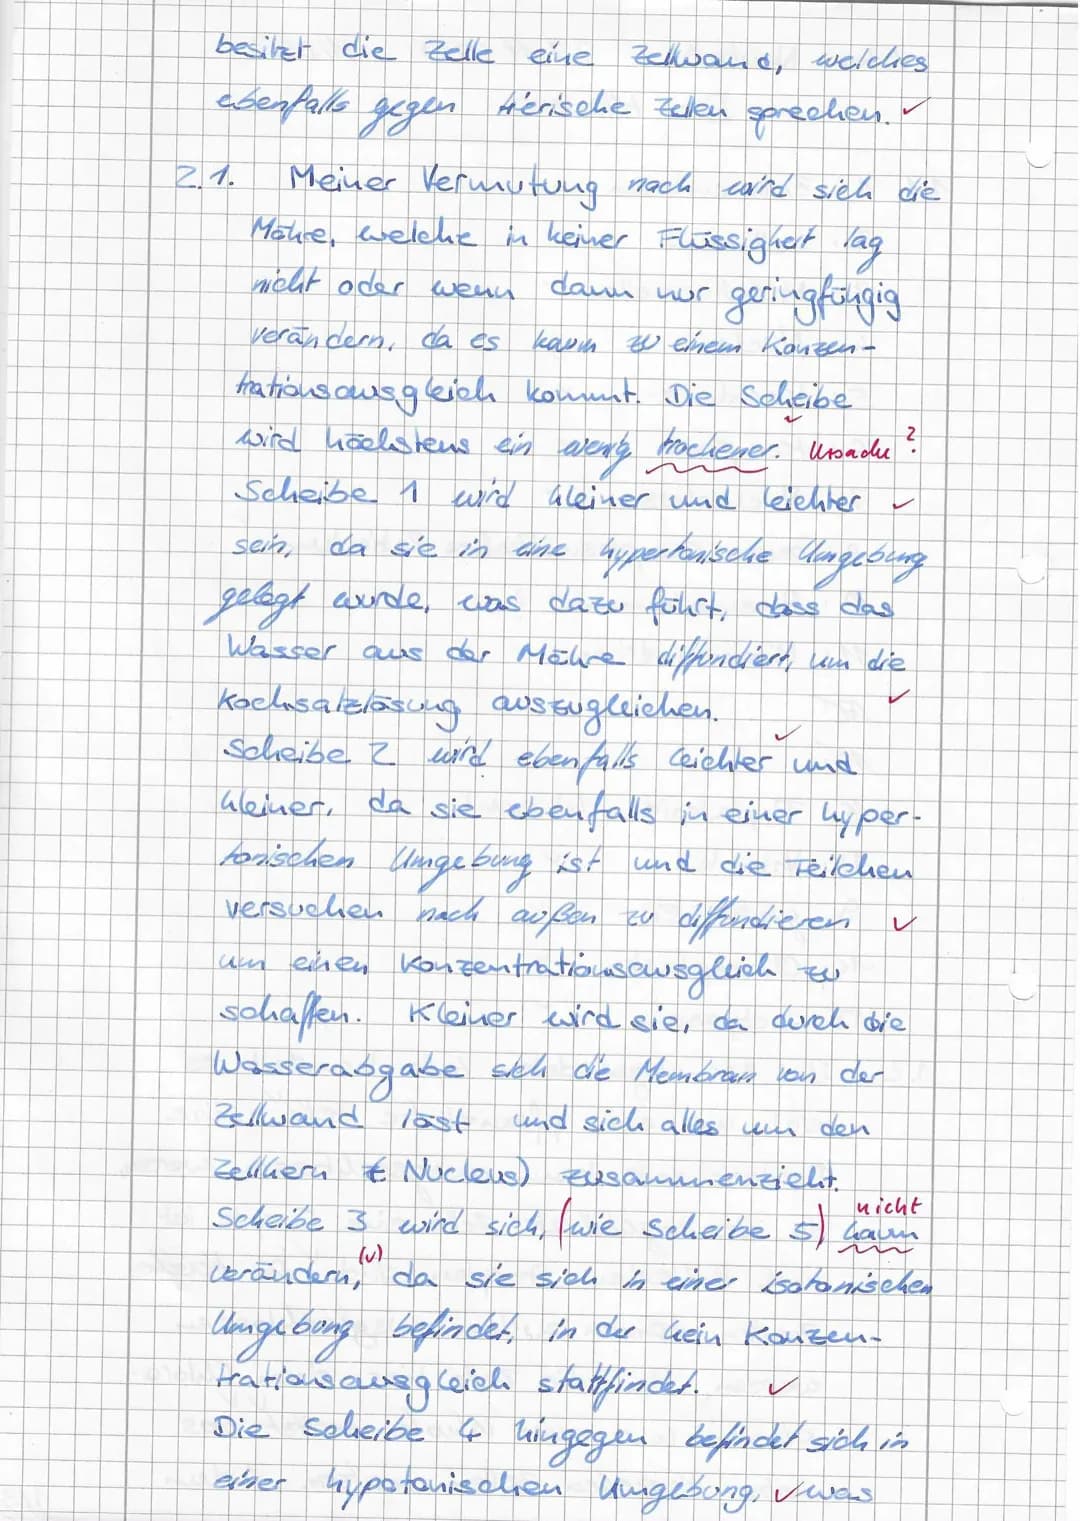 besitzt die Zelle eine Zellwand, welches
ebenfalls gegen tierische Zellen sprechen. ✓
2.1. Meiner Vermutung nach wird sich die
Möhre, welche in keiner Flüssigkeit lag
nicht oder wenn dann nur geringfüngig
verändern, da es kaum zu einem Konzen-
trationsausgleich kommt. Die Scheibe
wird höchstens ein wenig trockener. ✓ Ursache?
Scheibe 1 wird kleiner und leichter ✓
sein, da sie in eine hypertonische Umgebung
gelegt wurde, was dazu führt, dass das
Wasser aus der Möhre diffundiert, um die
Kochsalzlösung auszugleichen. ✓
Scheibe 2 wird ebenfalls leichter ✓ und
kleiner, da sie ebenfalls in einer hyper-
tonischen Umgebung ist und die Teilchen
versuchen nach außen zu diffundieren ✓
um einen Konzentrationsausgleich zu
schaffen. Kleiner wird sie, da durch die
Wasserabgabe sich die Membran von der
Zellwand löst und sich alles um den
Zellkern (Nucleus) zusammenzieht.
nicht
Scheibe 3 wird sich, (wie Scheibe 5) kaum
verändern, (✓) da sie sich in einer isotonischen
Umgebung befindet, in der kein Konzen-
trationsausgleich stattfindet. ✓
Die Scheibe 4 hingegen befindet sich in
einer hypotonischen Umgebung, ✓ was